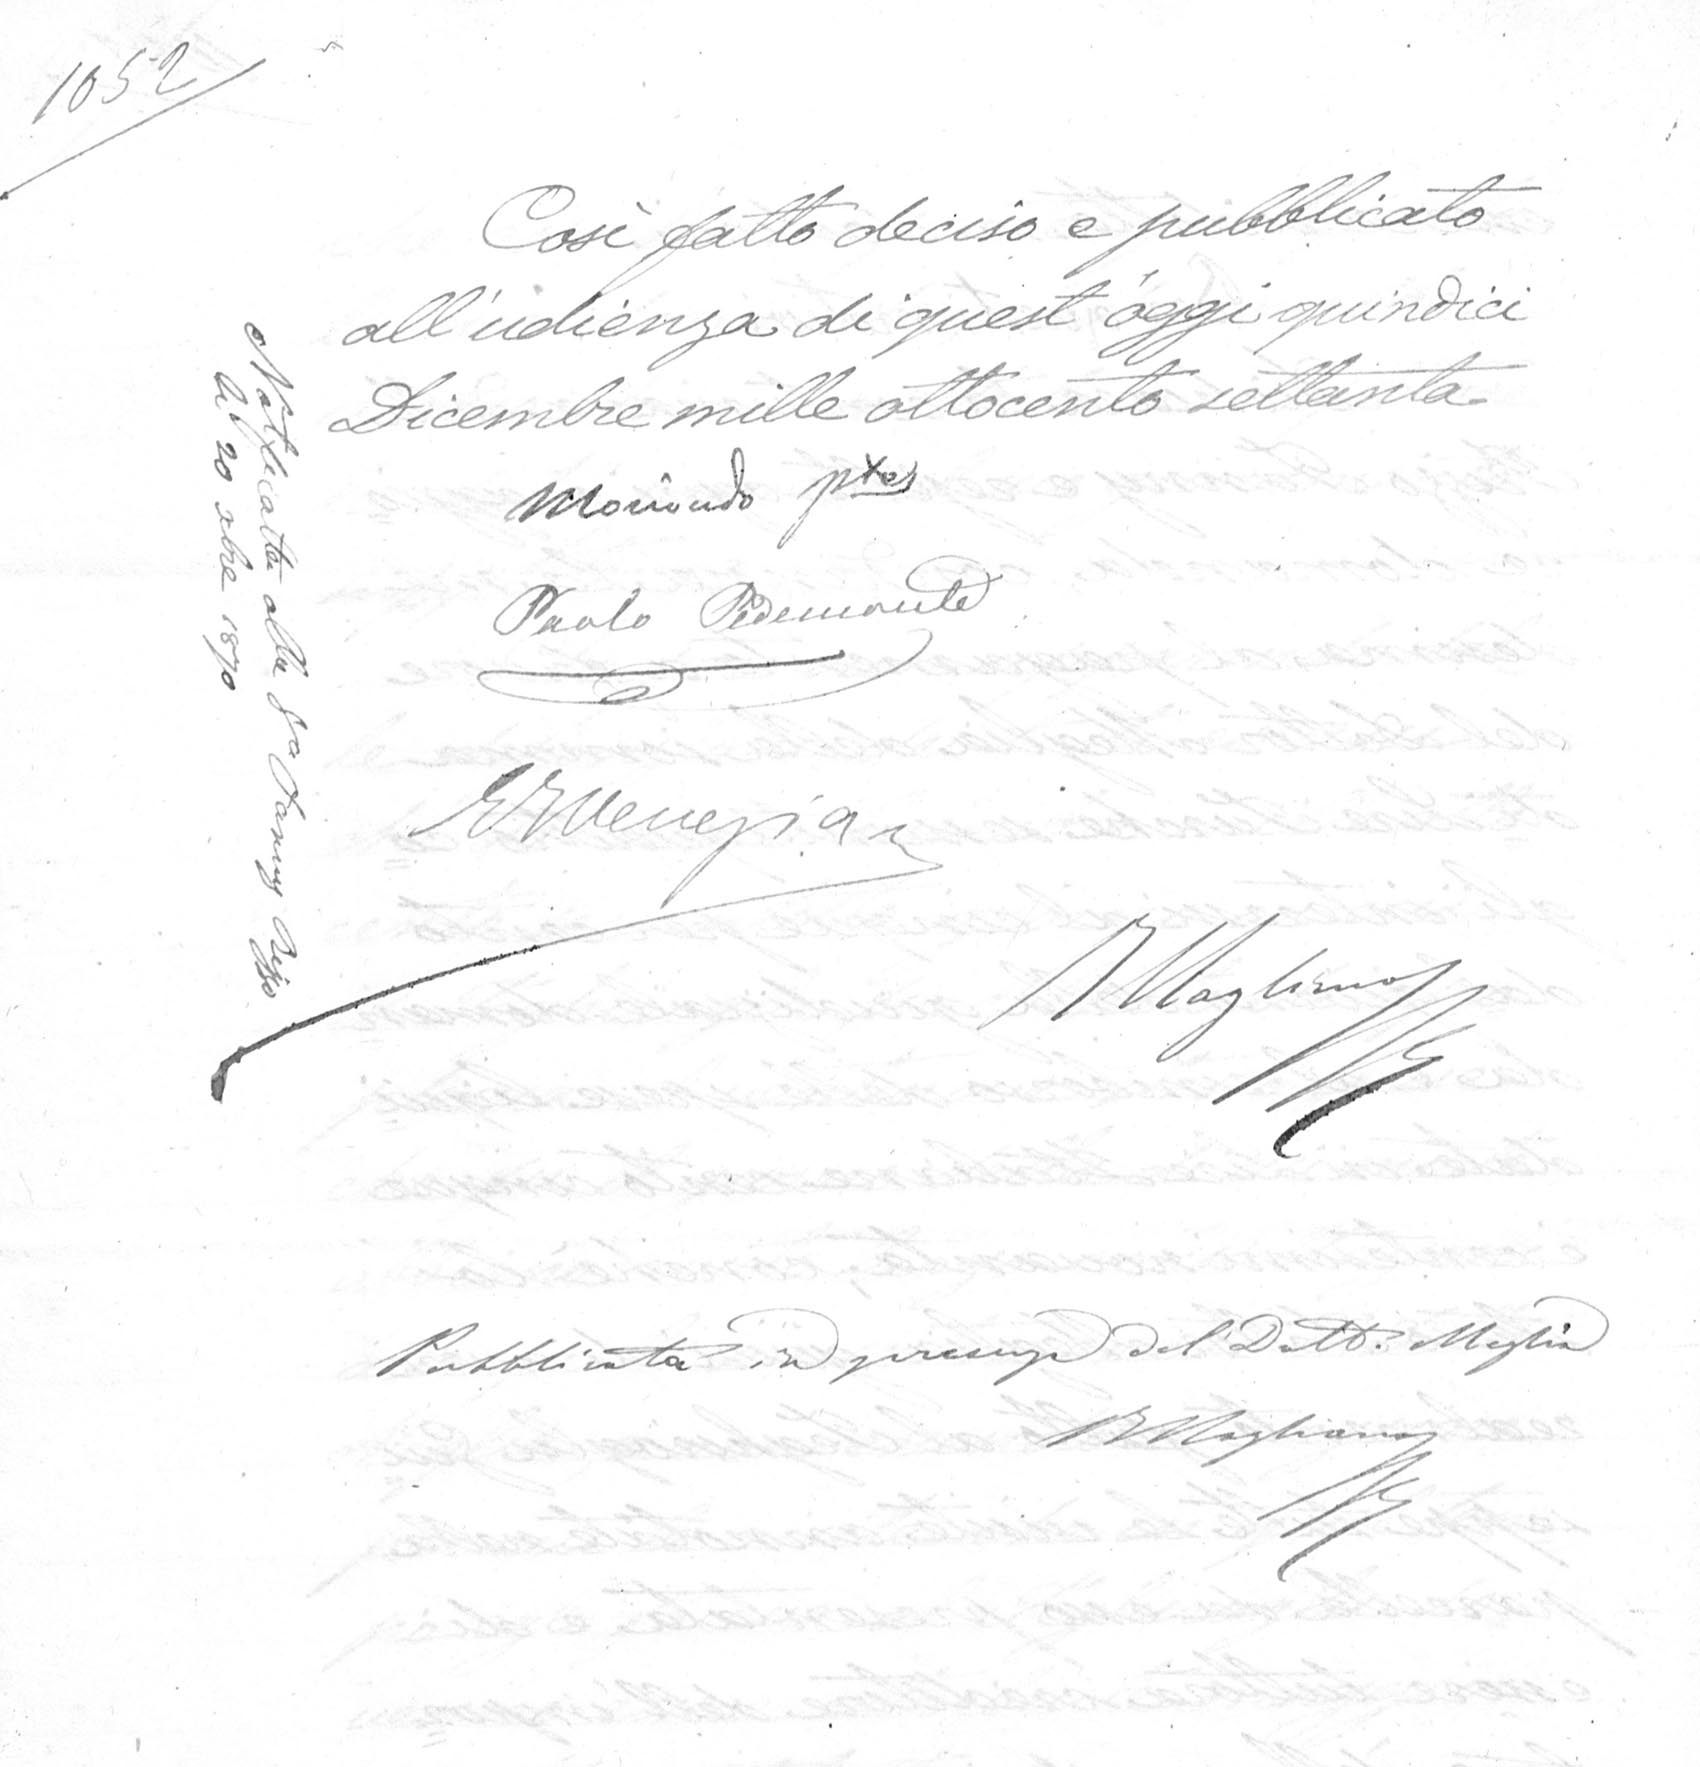 1052
Così fatto deciso e pubblicato
all'udienza di quest'oggi quindici
Dicembre mille ottocento settanta
Moriondo ptes
Paolo Pedemonte
Venezian
Magliano
Notificata alla Sra Fanny
li 20 xbre 1870
Pubblicata in presenza del Dott. Meglia
Magliano